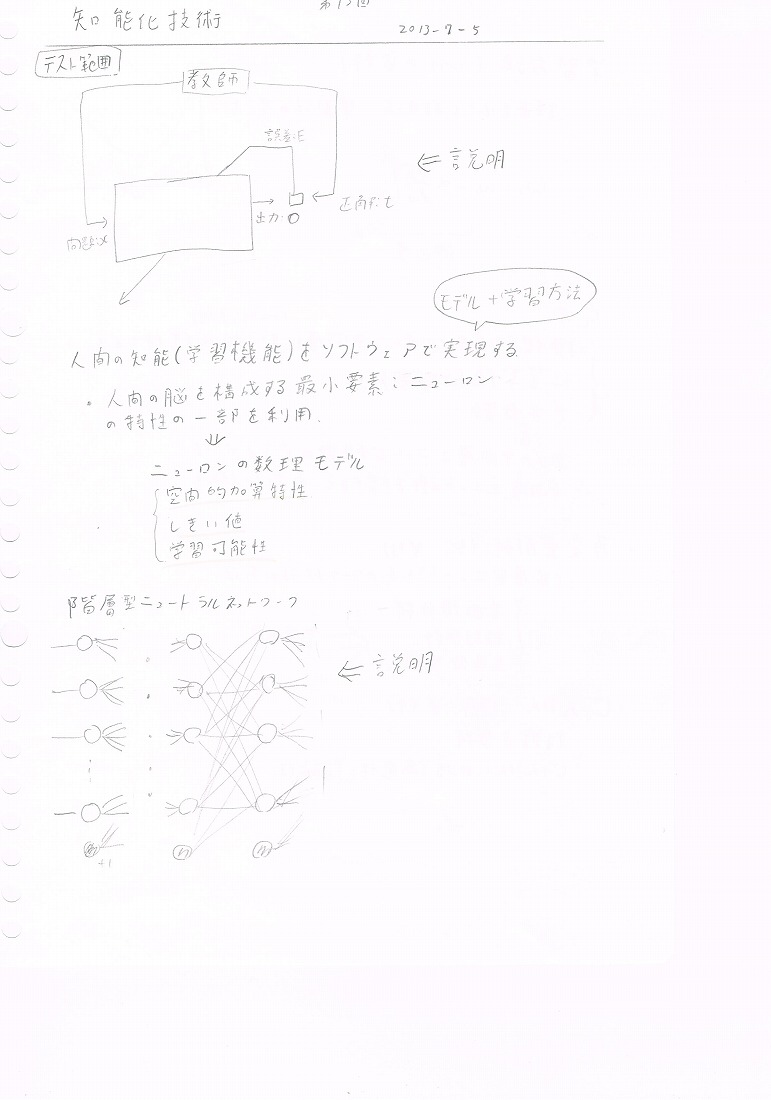 知能化技術
2013-7-5
テスト範囲
教師
誤差:E
⇐ 説明
正解:t
出力:O
問題:x
モデル+学習方法
人間の知能(学習機能)をソフトウェアで実現する
・人間の脳を構成する最小要素:ニューロン
の特性の一部を利用.
⇓
ニューロンの数理モデル
空間的加算特性
しきい値
学習可能性
階層型ニュートラルネットワーク
⇐ 説明
+1